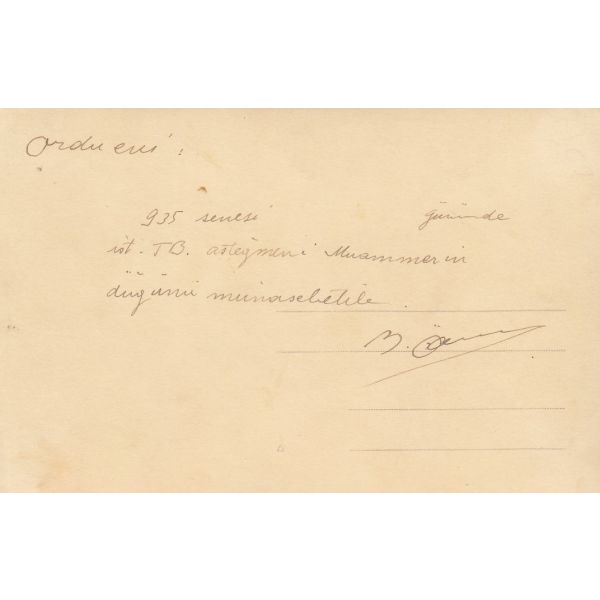 Ordu evi :
935 senesi gününde
ist. TB. asteğmeni Muammerin
düğünü münasebetile .